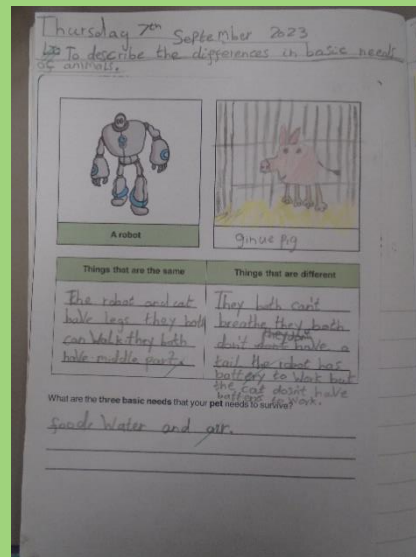 Thursday 7th September 2023
LO: To describe the differences in basic needs
of animals.
A robot
ginue pig
Things that are the same
Things that are different
The robot and cat
have legs they both
can walk they both
have middle part.
They both can't
breathe they both
they don't
don't dont have a
tail the robot has
battery to work but
the cat dosn't have
battons to work.
What are the three basic needs that your pet needs to survive?
food Water and air.